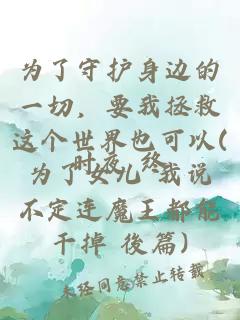 为了守护身边的
一切，要我拯救
这个世界也可以(
为了女儿 我说
不定连魔王都能
干掉 後篇)
时夜 终
未经同意禁止转载